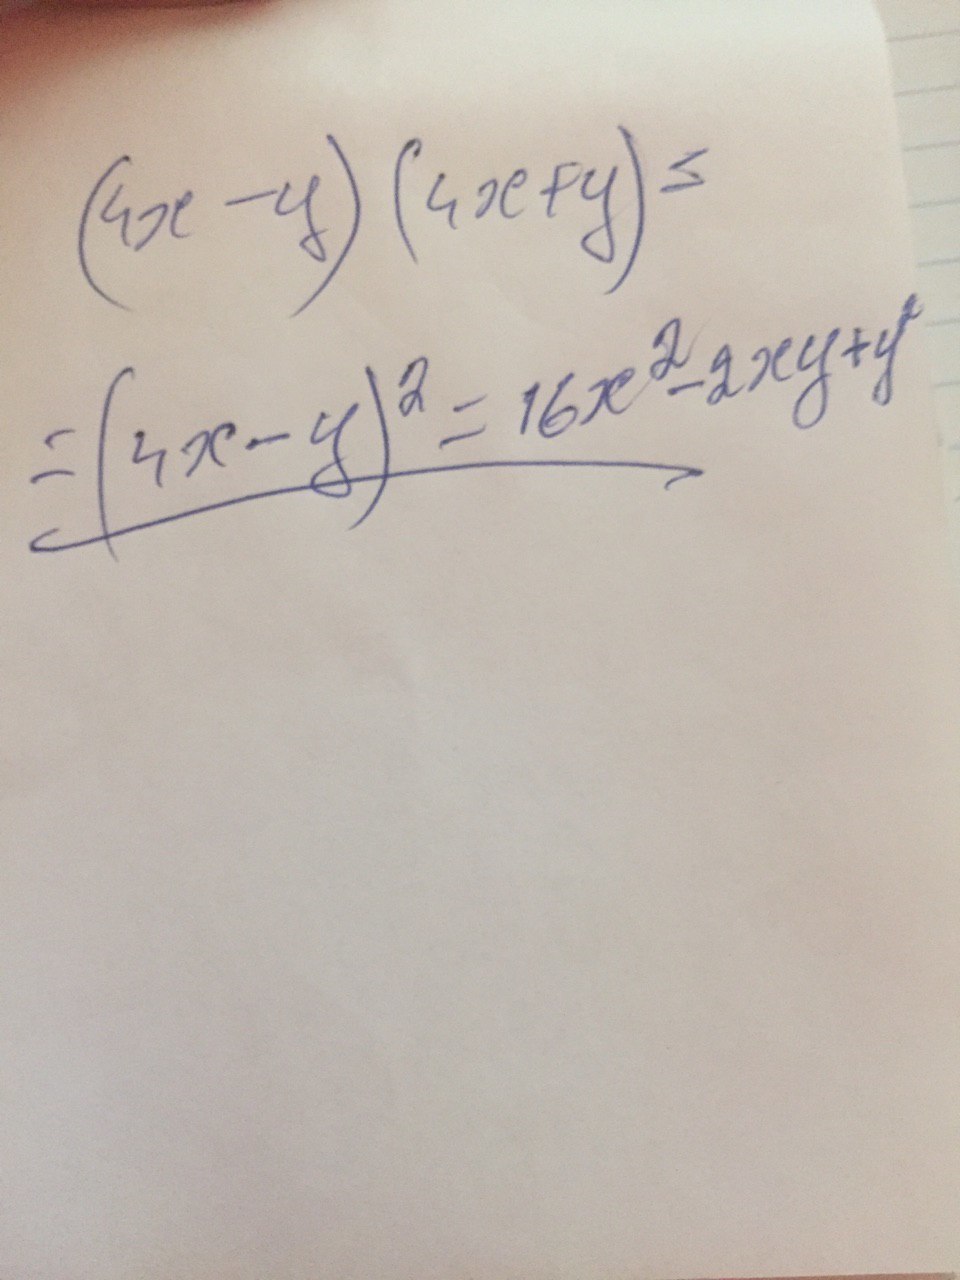 (4x-y)(4x+y)=
=(4x-y)²=16x²-2xy+y²